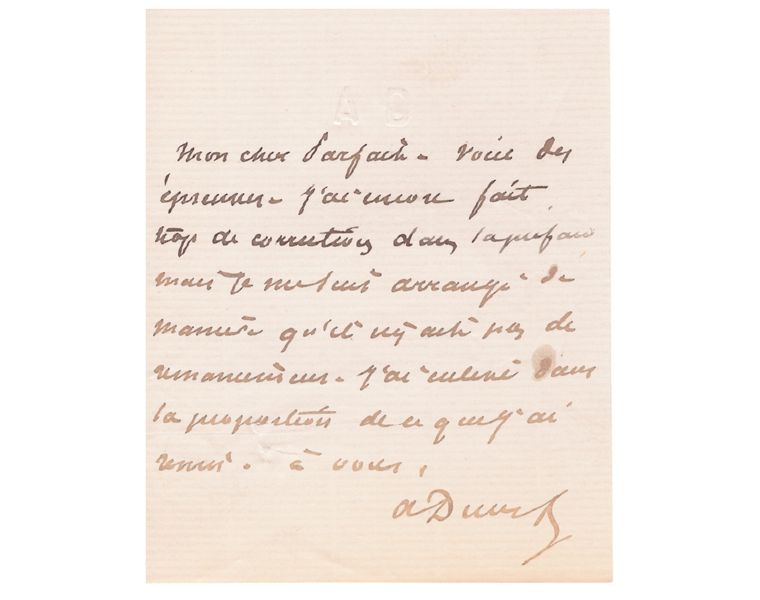 A D
Mon cher Parfait - Voici des
épreuves - J'ai encore fait
trop de corrections dans la préface
mais je me suis arrangé de
manière qu'il n'y ait pas de
remaniement - J'ai enlevé dans
la proportion de ce que j'ai
remis - à vous,
ADumas f